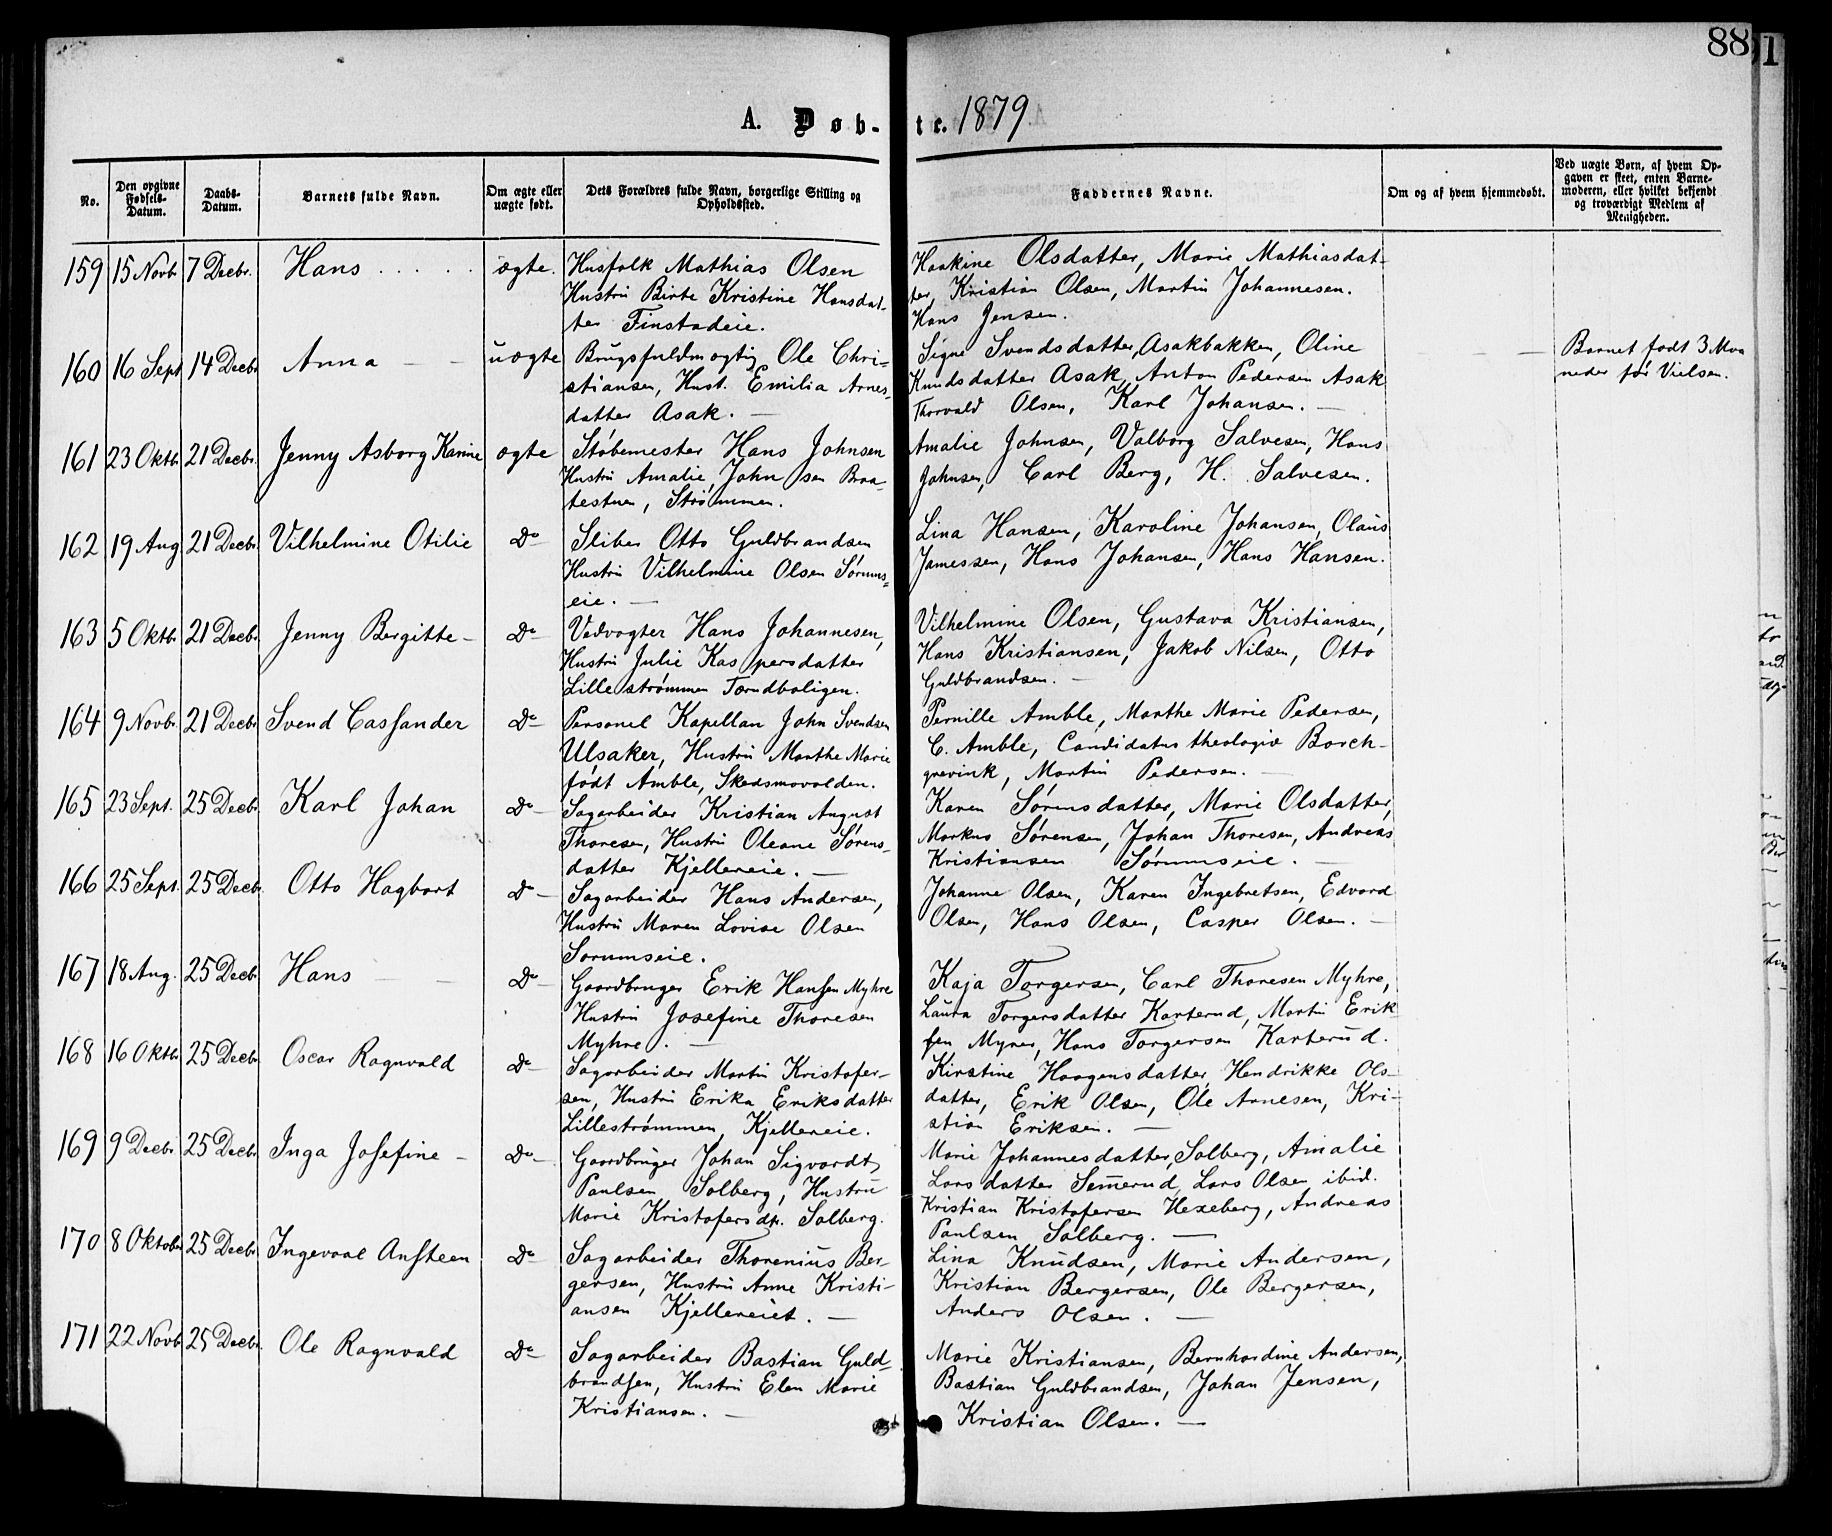 88
1
A. Døb-
te. 1879
No.
Den opgivne
Fødsels-
Datum.
Daabs-
Datum.
Barnets fulde Navn.
Om ægte eller
uægte født.
Dets Forældres fulde Navn, borgerlige Stilling og
Opholdssted.
Faddernes Navne.
Om og af hvem hjemmedøbt.
Ved uægte Børn, af hvem Op-
gaven er skeet, enten Barne-
moderen, eller hvilket bekjendt
og troværdigt Medlem af
Menigheden.
159 15 Novb. 7 Decbr. Hans . . . . . ægte.
Husfolk Mathias Olsen
Hustru Birte Kristine Hansdat-
ter Finstadeie.
Haakine Olsdatter, Marie Mathiasdat-
ter, Kristian Olsen, Martin Johannesen.
Hans Jensen.
160 16 Sept 14 Decbr Anna – uægte
Brugsfuldmægtig Ole Chri-
stiansen, Hust. Emilia Arnes-
datter Asak. —
Signe Svendsdatter, Asakbakken, Oline
Knudsdatter Asak, Anton Pedersen Asak
Thorvald Olsen, Karl Johansen. —
Barnet født 3 Maa
neder før Vielsen.
161 23 Oktb. 21 Decbr. Jenny Asborg Karine ægte
Støbemester Hans Johnsen
Hustru Amalie, Johnsen Braa-
testuen, Strømmen.
Amalie Johnsen, Valborg Salvesen, Hans
Johnsen, Carl Berg, H. Salvesen.
162 19 Aug 21 Decbr. Vilhelmine Otilie Do
Sliber Otto Guldbrandsen
Hustru Vilhelmine Olsen Sørums-
eie. —
Lina Hansen, Karoline Johansen, Olaus
Jamessen, Hans Johansen, Hans Hansen.
163 5 Oktb. 21 Decbr. Jenny Bergitte – Do
Vedvogter Hans Johannesen,
Hustru Julie Kaspersdatter
Lillestrømmen Tømdboligen.
Vilhelmine Olsen, Gustava Kristiansen,
Hans Kristiansen, Jakob Nilsen, Otto
Guldbrandsen. —
164 9 Novbr. 21 Decbr Svend Cassander Do
Personel Kapellan John Svendsen
Ulsaker, Hustru Marthe Marie
født Amble, Skedsmovolden.
Pernille Amble, Marthe Marie Pedersen,
C. Amble, Candidatus theologiæ Borch-
grevink, Martin Pedersen. —
165 23 Sept. 25 Decbr. Karl Johan Do
Sagarbeider Kristian August
Thoresen, Hustru Oleane Sørens-
datter Kjellereie. —
Karen Sørensdatter, Marie Olsdatter,
Markus Sørensen, Johan Thoresen, Andreas
Kristiansen Sørumseie. —
166 25 Sept. 25 Decbr. Otto Hagbart Do
Sagarbeider Hans Andersen,
Hustru Maren Lovise Olsen
Sørumseie.
Johanne Olsen, Karen Ingebretsen, Edvard
Olsen, Hans Olsen, Casper Olsen. —
167 18 Aug. 25 Decbr. Hans – – Do
Gaardbruger Erik Hansen Myhre
Hustru Josefine Thoresen
Myhre. —
Kaja Torgersen, Carl Thoresen Myhre,
Laura Torgersdatter Karterud, Martin Erik-
sen Myrer, Hans Torgersen Karterud.
168 16 Oktb. 25 Decbr Oscar Ragnvald Do
Sagarbeider Martin Kristofer-
sen, Hustru Erika Eriksdatter
Lillestrømmen, Kjellereie.
Kirstine Haagensdatter, Hendrikke Ols-
datter, Erik Olsen, Ole Arnesen, Kri-
stian Eriksen. —
169 9 Decbr 25 Decbr Inga Josefine – Do
Gaardbruger Johan Sigvardt
Paulsen Solberg, Hustru
Marie Kristofersdtr. Solberg.
Marie Johannesdatter, Solberg, Amalie
Larsdatter Semerud, Lars Olsen ibid.
Kristian Kristofersen Hexeberg, Andreas
Paulsen Solberg. —
170 8 Oktober 25 Decbr Ingevael Ansteen Do
Sagarbeider Thorenius Ber-
gersen, Hustru Anne Kristi-
ansen Kjellereiet. —
Lina Knudsen, Marie Andersen,
Kristian Bergersen, Ole Bergersen,
Anders Olsen. —
171 22 Novb. 25 Decbr. Ole Ragnvald Do
Sagarbeider Bastian Guld-
brandsen, Hustru Elen Marie
Kristiansen. —
Marie Kristiansen, Bernhardine Andersen,
Bastian Guldbrandsen, Johan Jensen,
Kristian Olsen. —